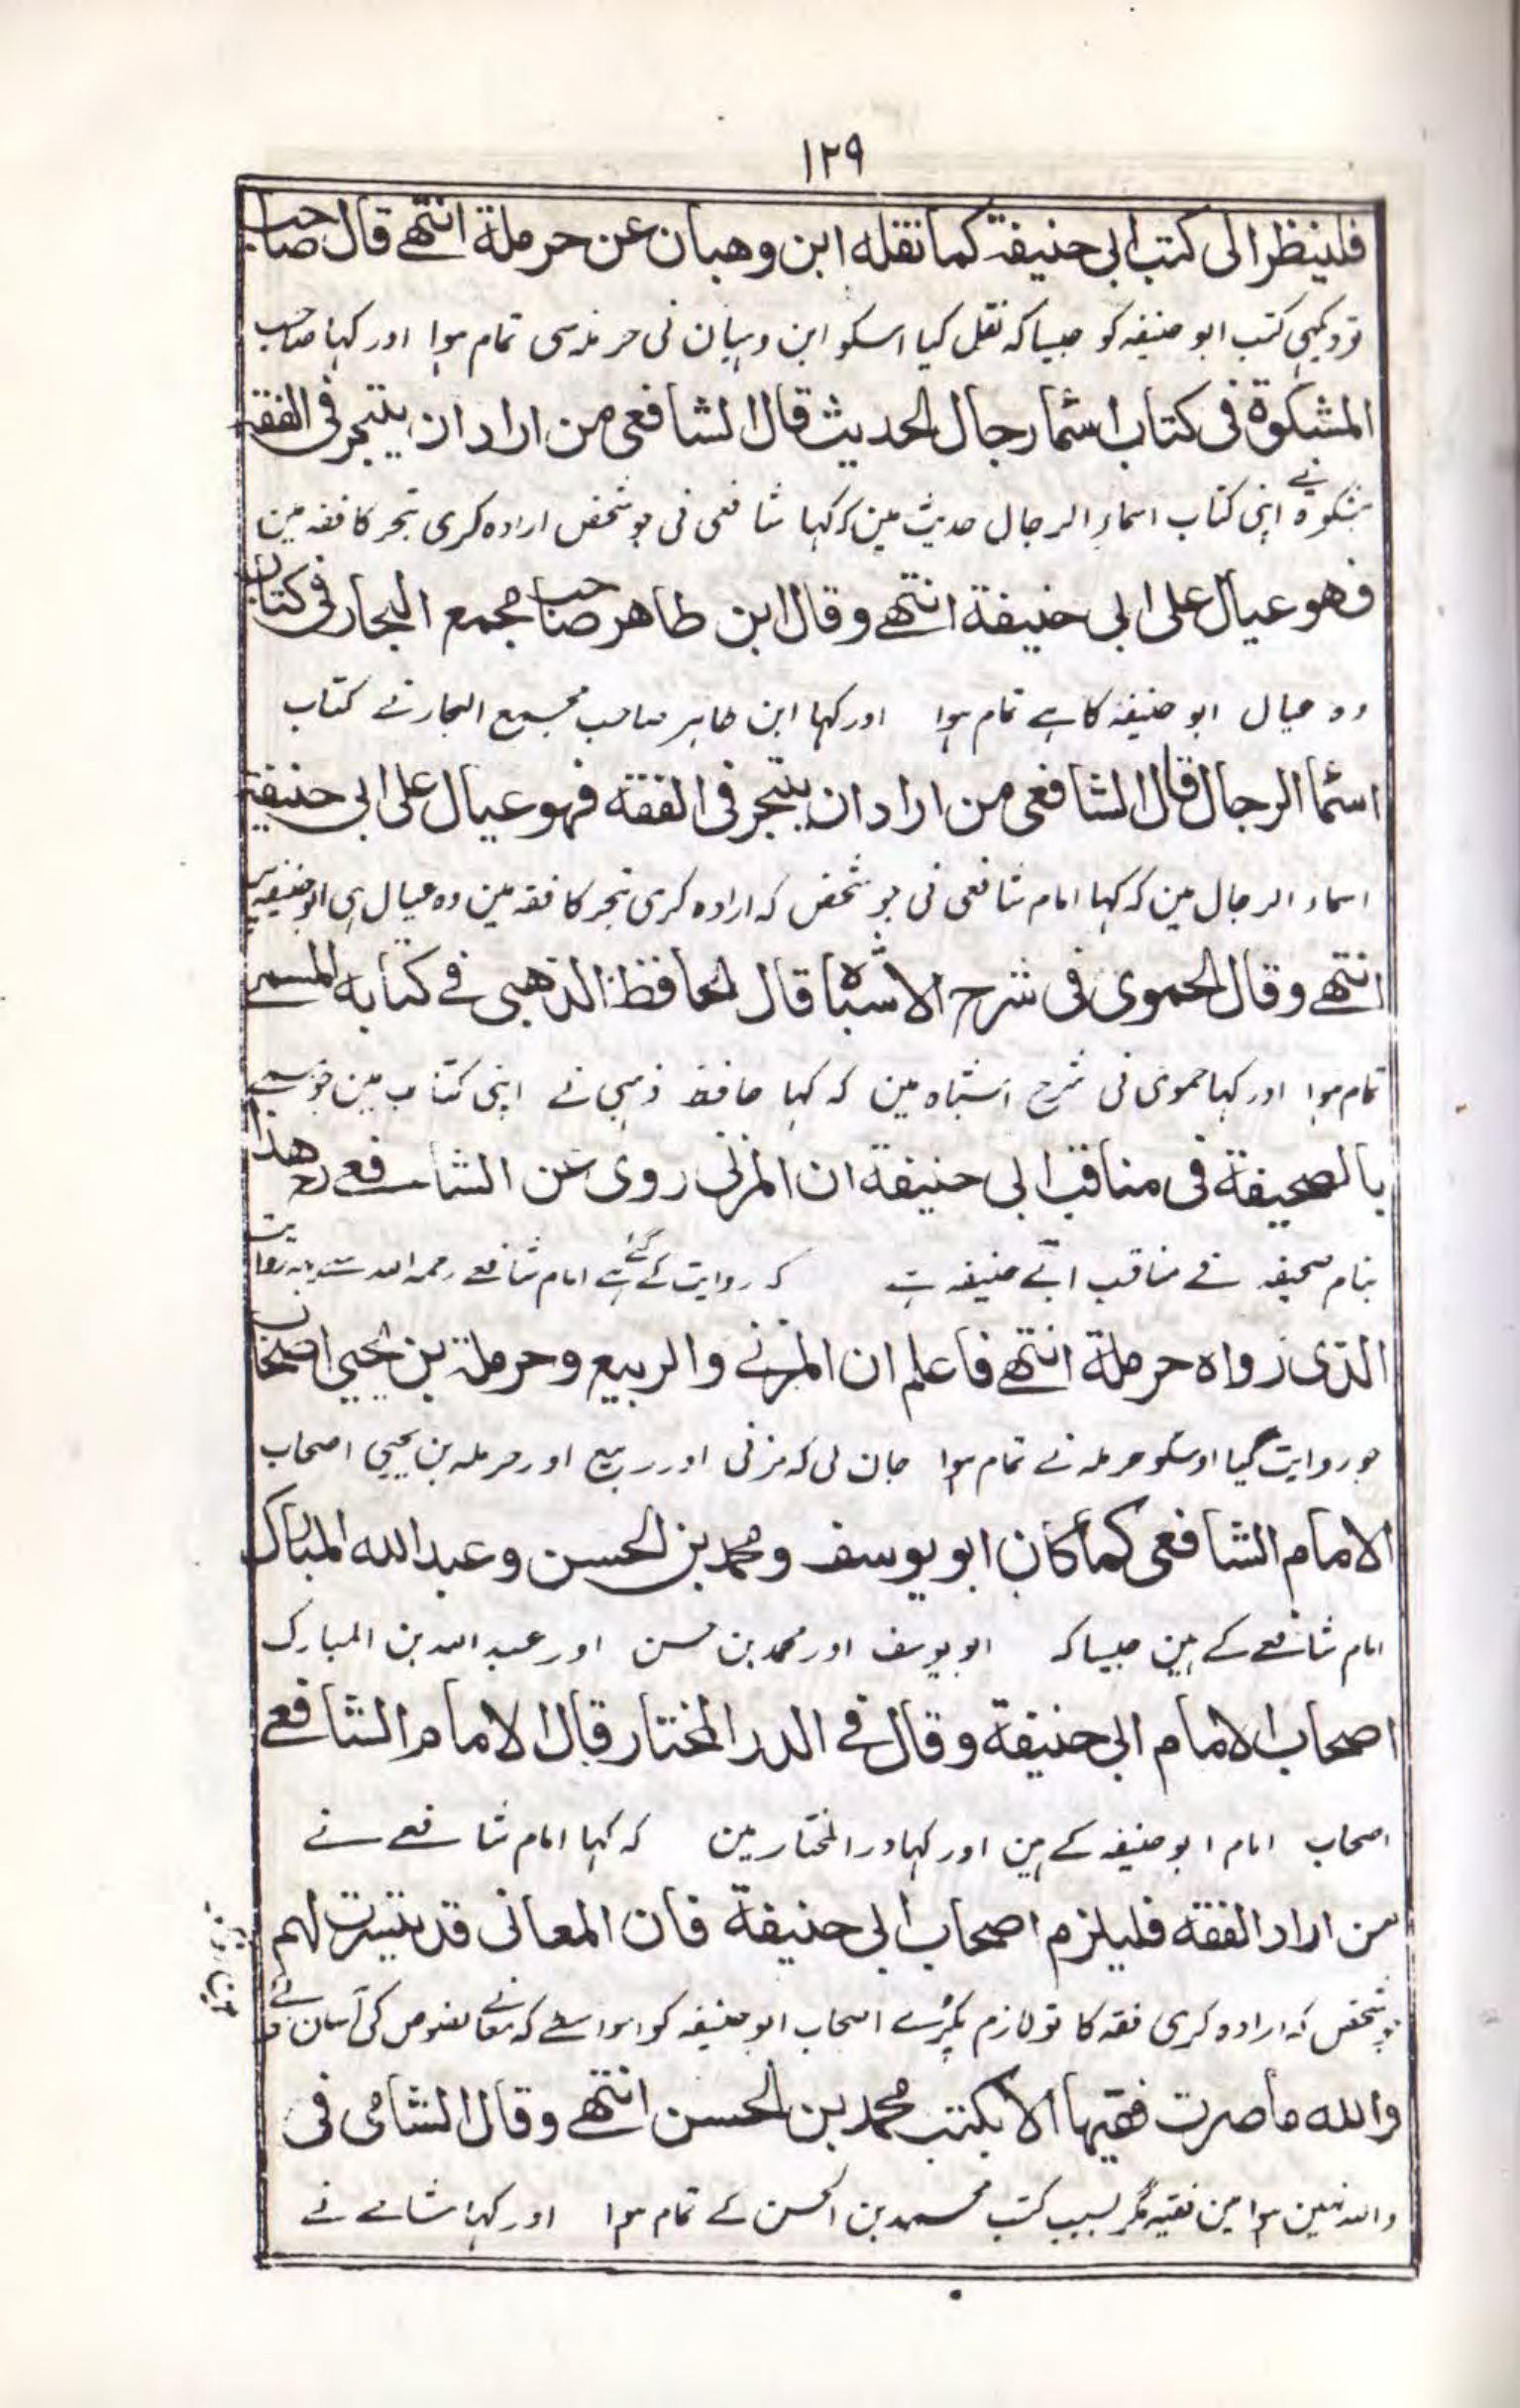 ١٢٩
فلينظر الى كتب ابى حنيفة كما نقله ابن وهبان عن حرملة انتهے قال صاحب
تو دیکھی کتب ابو حنیفہ کو جیسا کہ نقل کیا اسکو ابن وہبان نی حرملہ سی تمام ہوا اور کہا صاحب
المشكوة فى كتاب اسماء رجال الحديث قال الشافعى من اراد ان يتبحر فى الفقه
مشکوٰۃ نے اپنی کتاب اسماء الرجال حدیث مین کہ کہا شافعی نی جو شخص ارادہ کری تبحر کا فقہ مین
فهو عيال على ابى حنيفة انتهے وقال ابن طاهر صاحب مجمع البحار فى كتاب
وہ عیال ابو حنیفہ کا ہے تمام ہوا اور کہا ابن طاہر صاحب مجمع البحار نے کتاب
اسماء الرجال قال الشافعى من اراد ان يتبحر فى الفقه فهو عيال على ابى حنيفة
اسماء الرجال مین کہ کہا امام شافعی نی جو شخص کہ ارادہ کری تبحر کا فقہ مین وہ عیال ہی ابو حنیفہ
انتهے وقال الحموى فى شرح الاشباه قال الحافظ الذهبى فے كتابه المسمے
تمام ہوا اور کہا حموی نی شرح اشباہ مین کہ کہا حافظ ذہبی نے اپنی کتاب مین
بالصحيفة فى مناقب ابى حنيفة ان المزنى روى عن الشافعے رح هذا
بنام صحیفہ فے مناقب ابے حنیفہ ہے کہ روایت کے گئے ہے امام شافعے رحمہ اللہ سے یہ روایت
الذى رواه حرملة انتهے فاعلم ان المزنے والربيع وحرملة بن يحيى اصحاب
جو روایت کیا اوسکو حرملہ نے تمام ہوا جان لی کہ مزنی اور ربیع اور حرملہ بن یحیی اصحاب
الامام الشافعى كما كان ابو يوسف ومحمد بن الحسن وعبدالله المبارك
امام شافعے کے ہین جیسا کہ ابو یوسف اور محمد بن حسن اور عبد اللہ بن المبارک
اصحاب الامام ابى حنيفة وقال فے الدر المختار قال الامام الشافعے
اصحاب امام ابو حنیفہ کے ہین اور کہا در المختار مین کہ کہا امام شافعے نے
من اراد الفقه فليلزم اصحاب ابى حنيفة فان المعانى قد تيسرت لهم
جو شخص کہ ارادہ کری فقہ کا تو لازم پکڑے اصحاب ابو حنیفہ کو اسواسطے کہ معانے نصوص کی آسان
والله ما صرت فقيها الا بكتب محمد بن الحسن انتهے وقال الشامى فى
واللہ نہین ہوا مین فقیہ مگر بسبب کتب محمد بن الحسن کے تمام ہوا اور کہا شامے نے